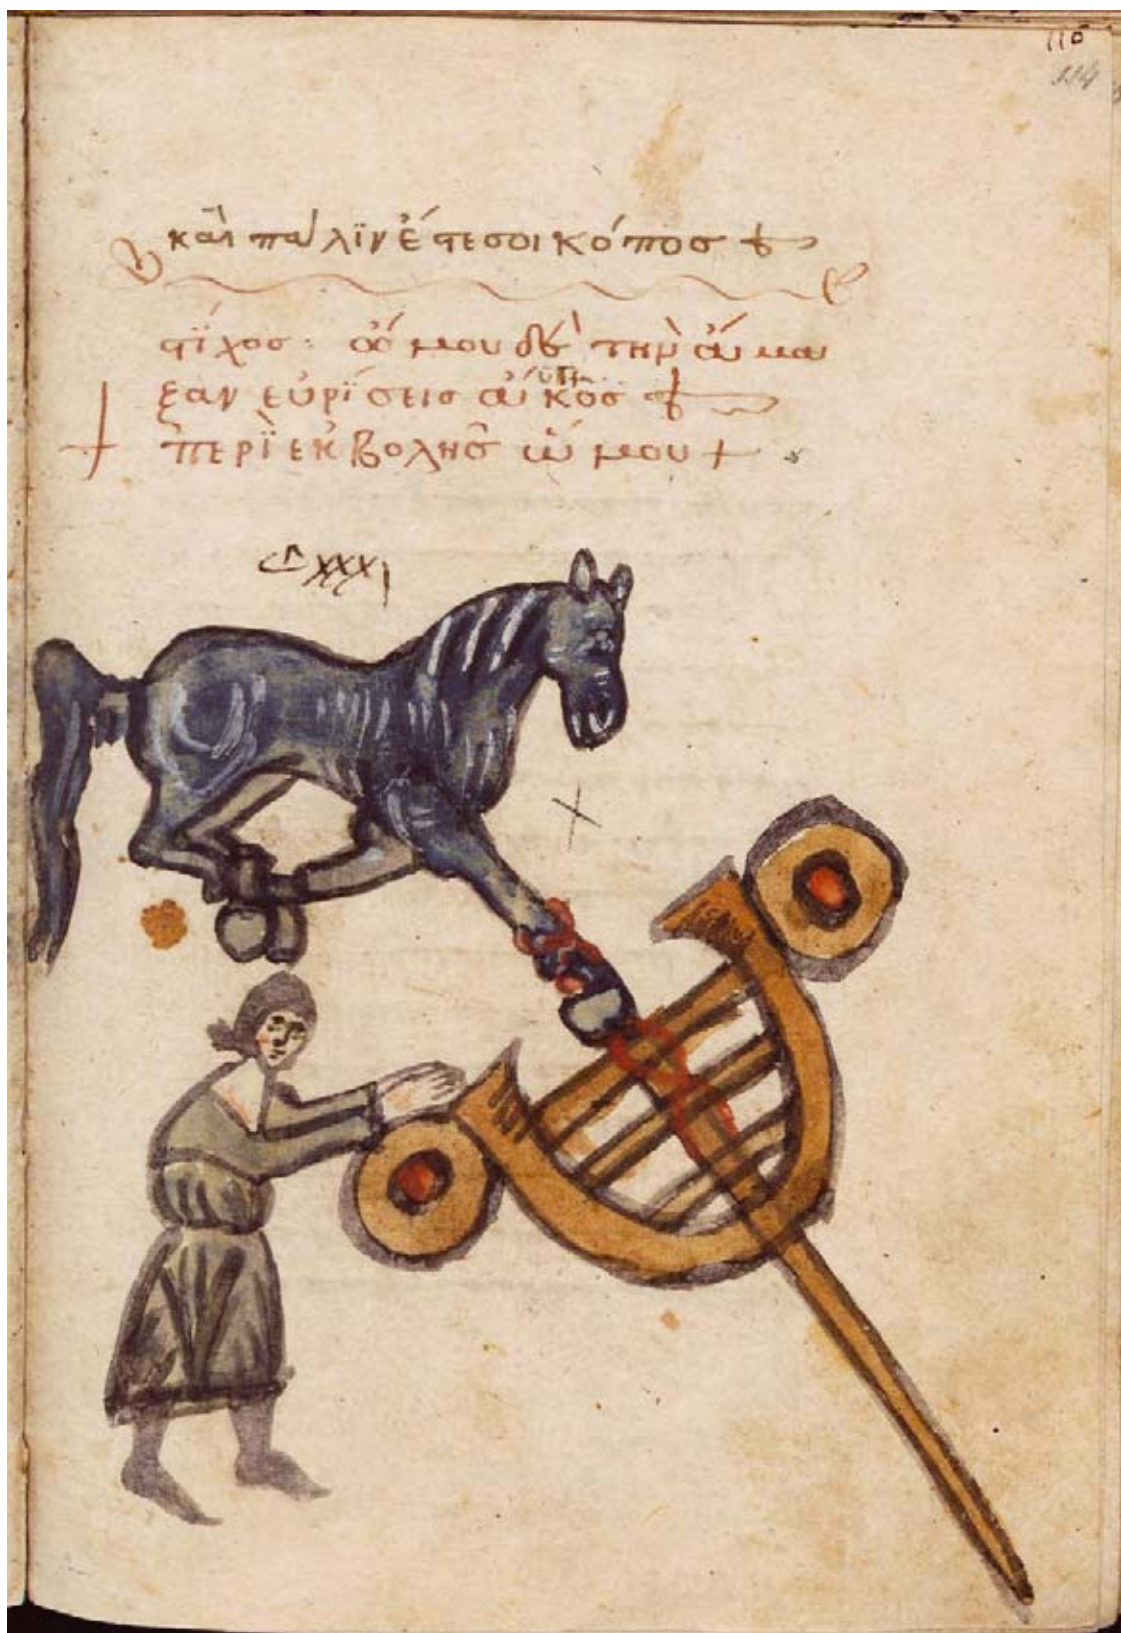 110
114
καὶ πάλιν ἔστε σοι κόπος
στίχος: ὤμου δὲ τὴν ἅμα
ξαν εὑρίσεις
περὶ ἐκβολῆς ὤμου +
CXXXI